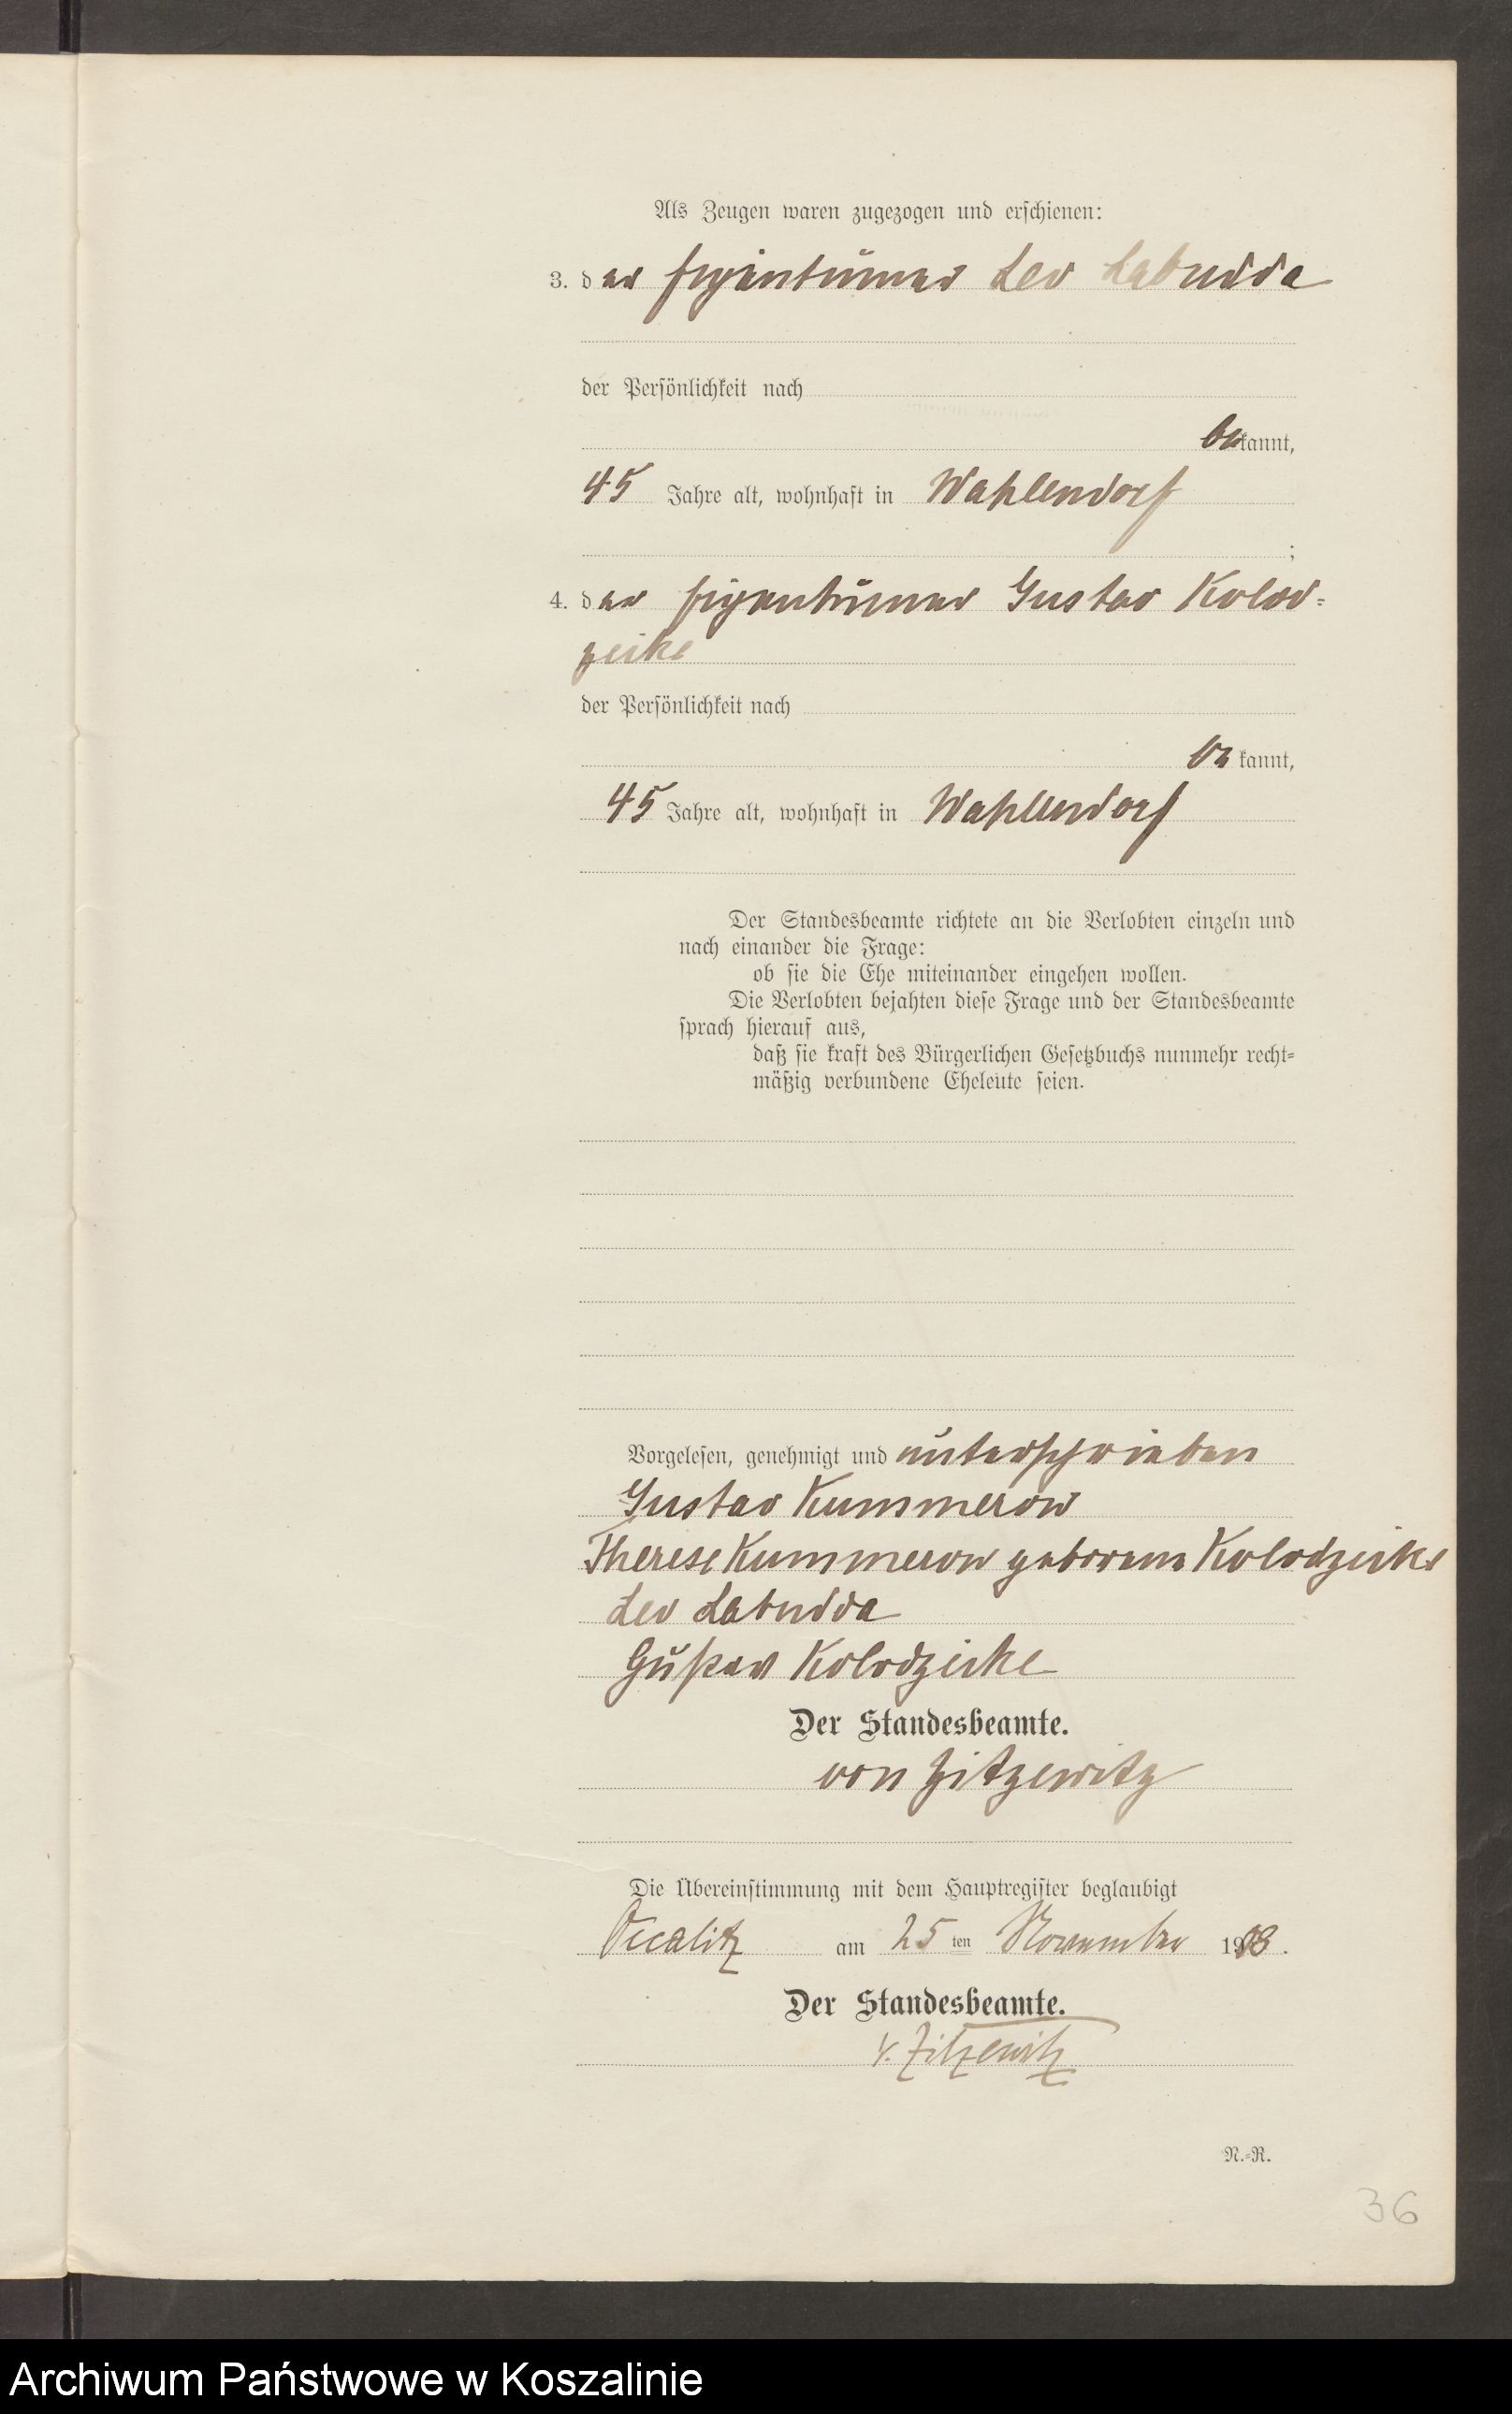 Als Zeugen waren zugezogen und erschienen:
3. der Eigentümer Leo Labudda
der Persönlichkeit nach
bekannt,
45 Jahre alt, wohnhaft in Wahlendorf
;
4. der Eigentümer Gustav Kolod-
zeike
der Persönlichkeit nach
bekannt,
45 Jahre alt, wohnhaft in Wahlendorf
Der Standesbeamte richtete an die Verlobten einzeln und
nach einander die Frage:
ob sie die Ehe miteinander eingehen wollen.
Die Verlobten bejahten diese Frage und der Standesbeamte
sprach hierauf aus,
daß sie kraft des Bürgerlichen Gesetzbuchs nunmehr recht-
mäßig verbundene Eheleute seien.
Vorgelesen, genehmigt und unterschrieben
Gustav Kummerow
Therese Kummerow geborene Kolodzeike
Leo Labudda
Gustav Kolodzeike
Der Standesbeamte.
von Zitzewitz
Die Übereinstimmung mit dem Hauptregister beglaubigt
Occalitz am 25ten November 1908.
Der Standesbeamte.
v. Zitzewitz
N.-R.
36
Archiwum Państwowe w Koszalinie